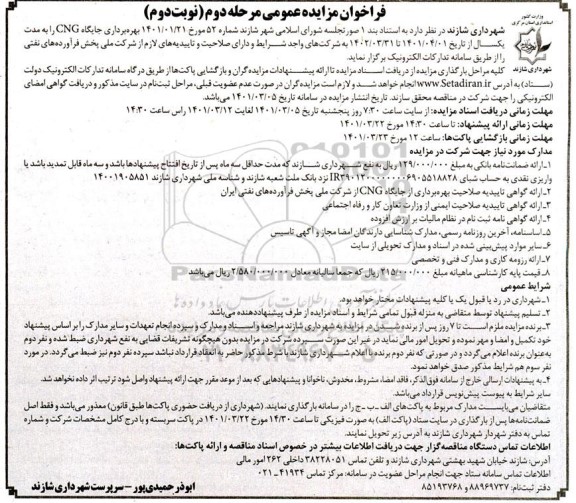 فراخوان مزایده عمومی مرحله دوم (نوبت دوم)
وزارت کشور
استانداری استان مرکزی
شهرداری شازند
شهرداری شازند در نظر دارد به استناد بند ۱ صورتجلسه شورای اسلامی شهر شازند شماره ۵۲ مورخ ۱۴۰۱/۰۱/۲۱ بهره‌برداری جایگاه CNG را به مدت
یکسال از تاریخ ۱۴۰۱/۰۴/۰۱ تا ۱۴۰۲/۰۳/۳۱ به شرکت‌های واجد شرایط و دارای صلاحیت و تاییدیه‌های لازم از شرکت ملی پخش فرآورده‌های نفتی
را از طریق سامانه تدارکات الکترونیک برگزار نماید.
کلیه مراحل بارگذاری مزایده از دریافت اسناد مزایده تا ارائه پیشنهادات مزایده‌گران و بازگشایی پاکت‌ها از طریق درگاه سامانه تدارکات الکترونیک دولت
(ستاد) به آدرس www.Setadiran.ir انجام خواهد شد و لازم است مزایده‌گران در صورت عدم عضویت قبلی، مراحل ثبت‌نام در سایت مذکور و دریافت گواهی امضای
الکترونیکی را جهت شرکت در مناقصه محقق سازند. تاریخ انتشار مزایده در سامانه تاریخ ۱۴۰۱/۰۳/۰۵ می‌باشد.
مهلت زمانی دریافت اسناد مزایده: از سایت ساعت ۷:۳۰ روز پنجشنبه تاریخ ۱۴۰۱/۰۳/۰۵ لغایت ۱۴۰۱/۰۳/۱۲ راس ساعت ۱۴:۳۰
مهلت زمانی ارائه پیشنهاد: تا ساعت ۱۴:۳۰ مورخ ۱۴۰۱/۰۳/۲۲
مهلت زمانی بازگشایی پاکت‌ها: ساعت ۱۲ مورخ ۱۴۰۱/۰۳/۲۳
مدارک مورد نیاز جهت شرکت در مزایده
۱ـ ارائه ضمانت‌نامه بانکی به مبلغ ۱۲۹/۰۰۰/۰۰۰ ریال به نفع شهرداری شازند که مدت حداقل سه ماه پس از تاریخ افتتاح پیشنهادها باشد و سه ماه قابل تمدید باشد یا
واریز نقدی به حساب شبای نزد بانک ملت شعبه شازند و شناسه ملی شهرداری شازند ۱۴۰۰۱۹۰۵۸۵۱
۲ـ ارائه گواهی تاییدیه صلاحیت بهره‌برداری از جایگاه CNG از شرکت ملی پخش فرآورده‌های نفتی ایران
۳ـ ارائه گواهی تاییدیه صلاحیت ایمنی از وزارت تعاون کار و رفاه اجتماعی
۴ـ ارائه گواهی نامه ثبت نام در نظام مالیات بر ارزش افزوده
۵ـ اساسنامه، آخرین روزنامه رسمی، مدارک شناسایی دارندگان امضا مجاز و آگهی تاسیس
۶ـ سایر موارد پیش‌بینی شده در اسناد و مدارک تحویلی از سایت
۷ـ ارائه رزومه کاری و مدارک فنی و تخصصی
۸ـ قیمت پایه کارشناسی ماهیانه مبلغ ۲۱۵/۰۰۰/۰۰۰ ریال که جمعا سالیانه معادل ۲/۵۸۰/۰۰۰/۰۰۰ ریال می‌باشد
شرایط عمومی
۱ـ شهرداری در رد یا قبول یک یا کلیه پیشنهادات مختار خواهد بود.
۲ـ تسلیم پیشنهاد توسط متقاضی به منزله قبول تمامی شرایط و اسناد مزایده از طرف پیشنهاددهنده می‌باشد.
۳ـ برنده مزایده ملزم است تا ۷ روز پس از برنده شدن در مزایده به شهرداری شازند مراجعه و اسناد و مدارک و سپرده انجام تعهدات و سایر مدارک را بر اساس پیشنهاد
خود تکمیل و امضا و مهر نموده و تحویل امور مالی نماید در غیر این صورت سپرده شرکت در مزایده بدون هیچگونه تشریفات قضایی به نفع شهرداری ضبط شده و نفر دوم
به عنوان برنده اعلام می‌گردد و در صورتی که نفر دوم برنده با اعلام شهرداری شازند با شرط مذکور حاضر به انعقاد قرارداد نباشد سپرده نفر دوم نیز ضبط می‌گردد. در مورد
نفر سوم هم شرایط مذکور صدق خواهد نمود.
۴ـ به پیشنهادات ارسالی خارج از سامانه فوق‌الذکر، فاقد امضا، مشروط، مخدوش، ناخوانا و پیشنهادهایی که بعد از موعد مقرر جهت ارائه پیشنهاد واصل شود ترتیب اثر داده نخواهد شد.
سایر شرایط به پیوست پیش‌نویس قرارداد می‌باشد.
متقاضیان می‌بایست مدارک مربوط به پاکت‌های الف ـ ب ـ ج را در سامانه بارگذاری نمایند. (شهرداری از دریافت حضوری پاکت‌ها طبق قانون) معذور می‌باشد و فقط اصل
ضمانت‌نامه‌ها پس از بارگذاری در سایت ستاد (پاکت الف) به صورت فیزیکی تا ساعت ۱۴:۳۰ مورخ ۱۴۰۱/۰۳/۲۲ در پاکت سربسته و با درج کامل مشخصات شرکت و شماره
تماس به دفتر شهردار شهرداری شازند به آدرس زیر تحویل نمایند.
اطلاعات تماس دستگاه مناقصه‌گزار جهت دریافت اطلاعات بیشتر در خصوص اسناد مناقصه و ارائه پاکت‌ها:
آدرس: شازند خیابان شهید بهشتی شهرداری شازند و تلفن تماس ۳۸۲۲۸۰۵۱ داخلی ۲۶۲ امور مالی
اطلاعات تماس سامانه ستاد جهت انجام مراحل عضویت در سامانه: مرکز تماس ۴۱۹۳۴ ـ ۰۲۱
دفتر ثبت‌نام: ۸۸۹۶۹۷۳۷ و ۸۵۱۹۳۷۶۸
ابوذر حمیدی‌پور ـ سرپرست شهرداری شازند